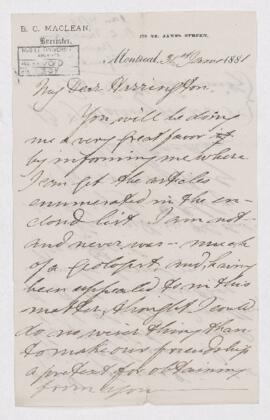 B. C. MACLEAN,
Barrister,
ST. JAMES STREET,
Montreal, 1881
My Dear Harrington.
You will be doing
me a very great favor if
by informing me where
I can get the articles
enumerated in the en-
closed list. I am not -
and never was - much
of a geologist, and having
been appealed to in this
matter, thought I could
do no wiser thing than
to make our friendship
a pretext for obtaining
from you